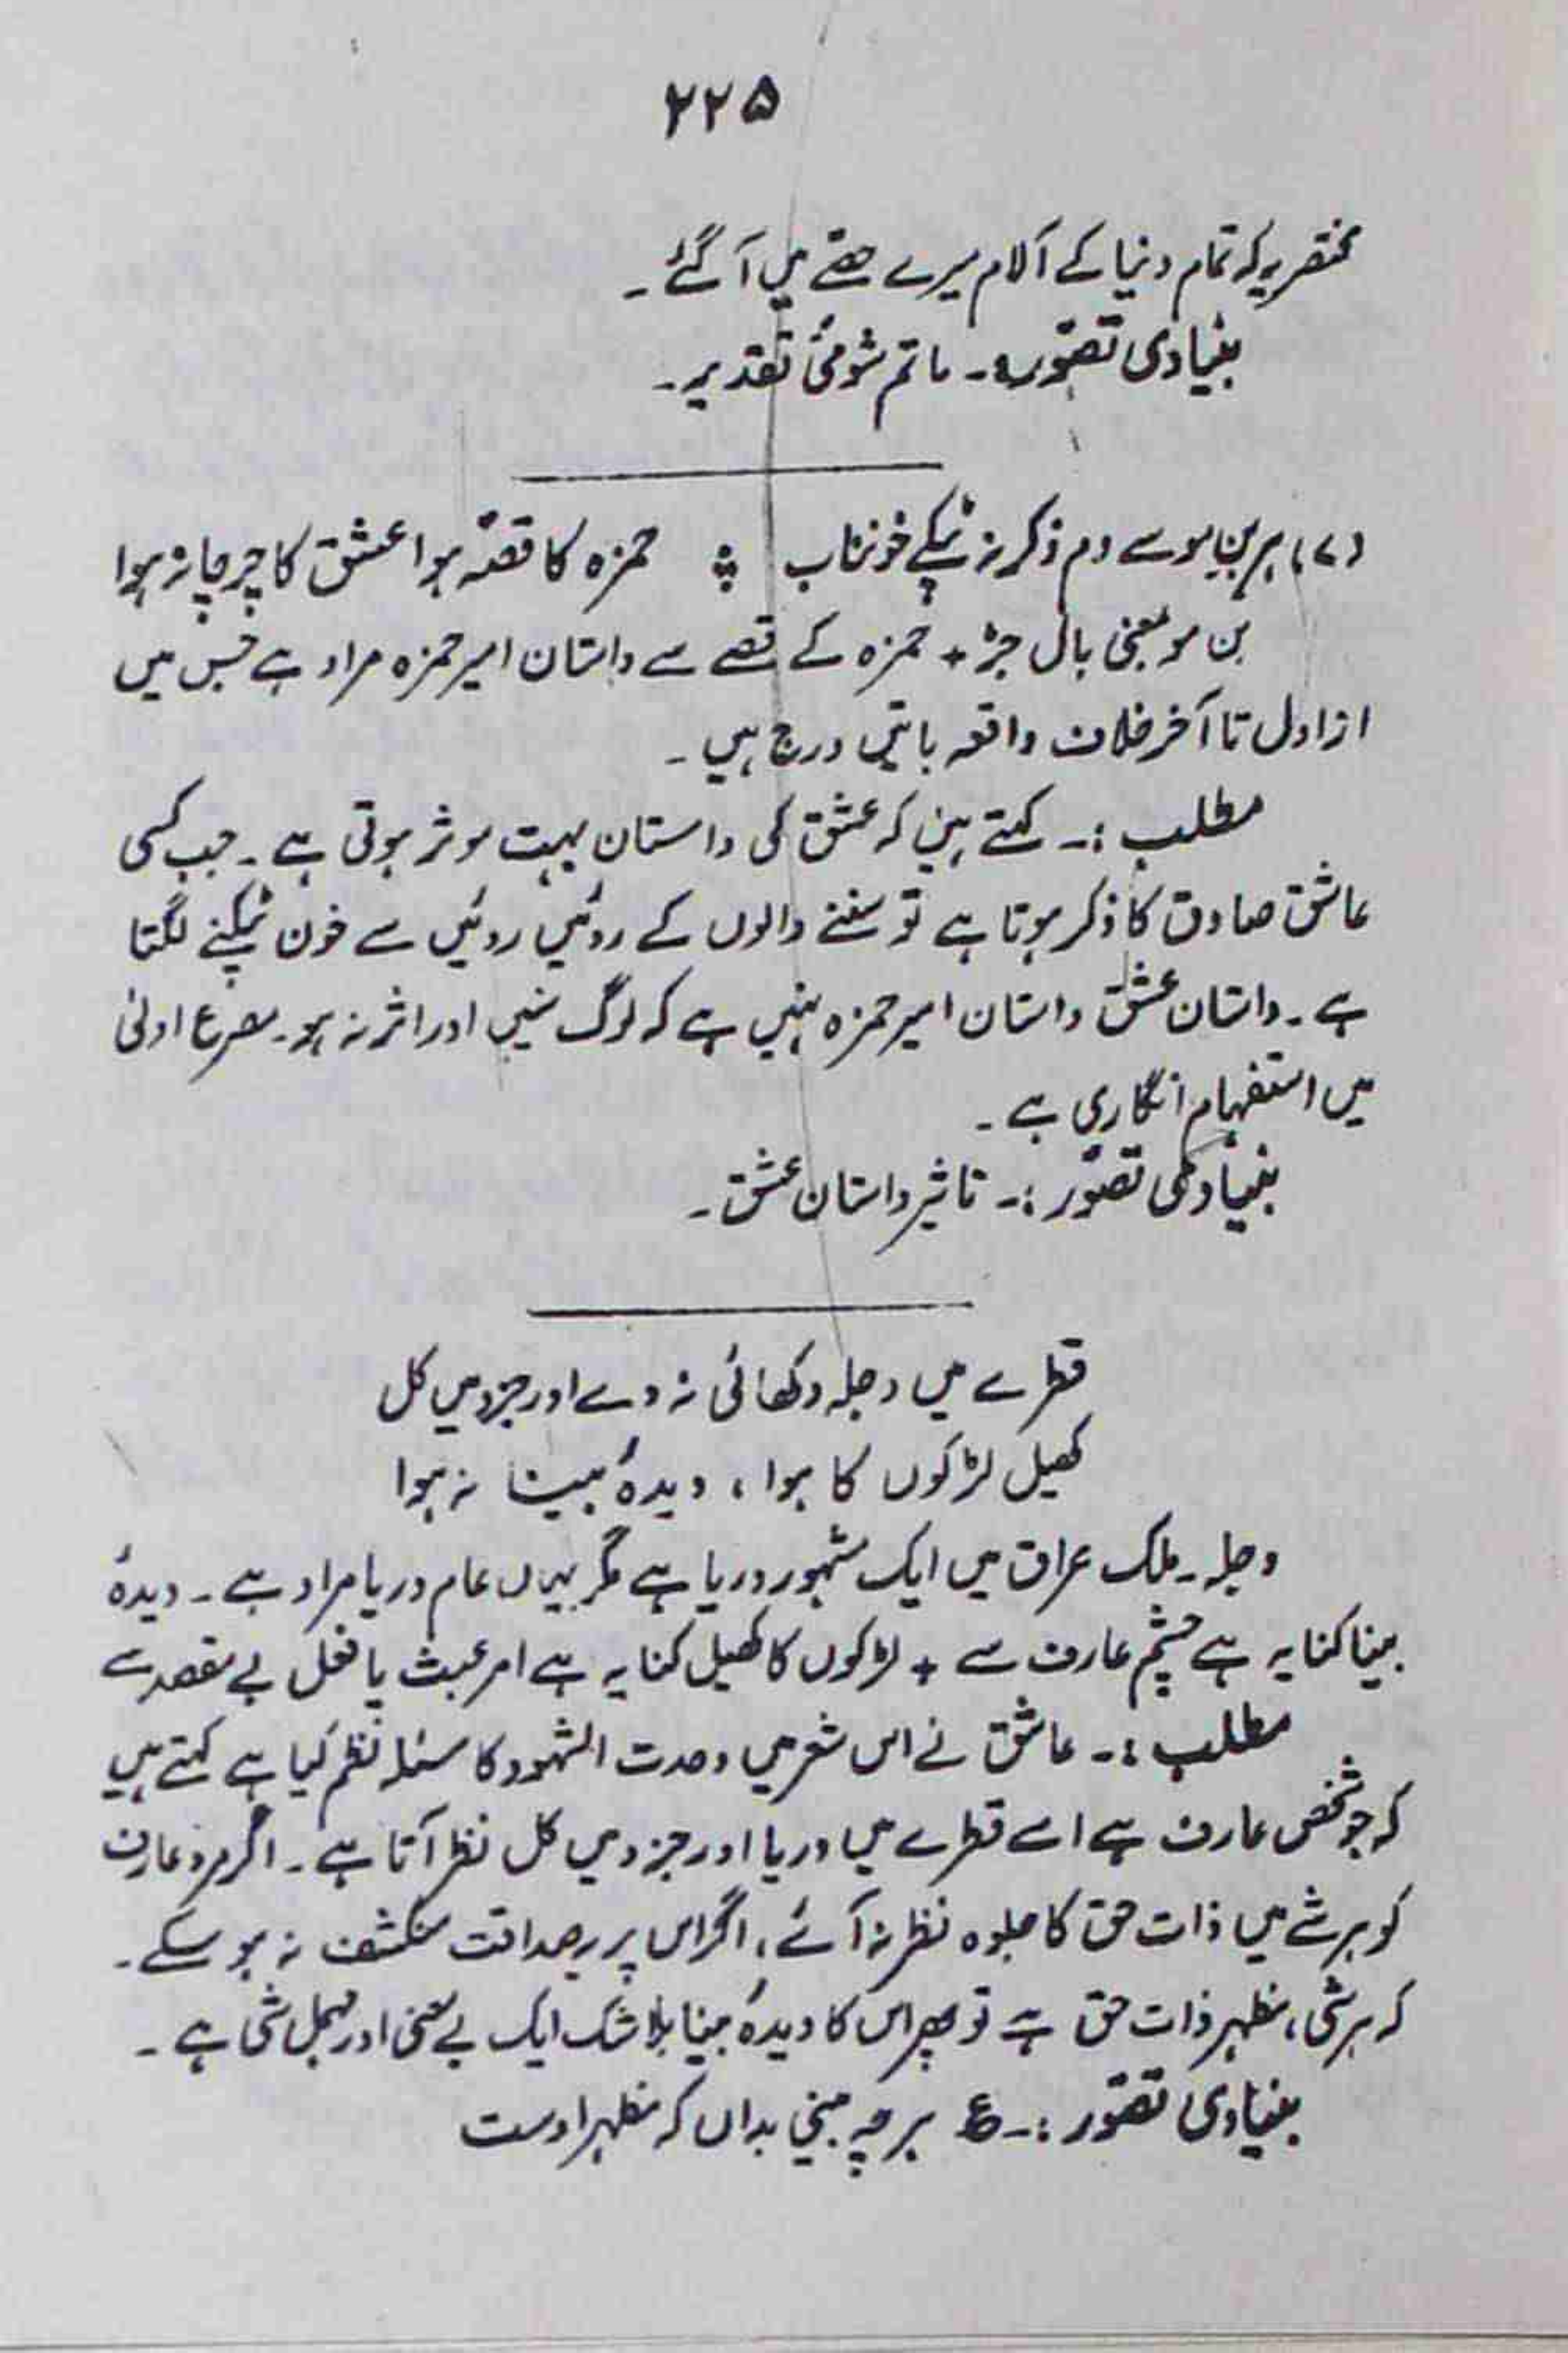 ۲۲۵
مختصر یہ کہ تمام دنیا کے آلام میرے حصّے میں آ گئے۔
بنیادی تصوّر:۔ ماتم شومئ تقدیر۔
(۷) ہر بن مو سے دم ذکر نہ ٹپکے خونناب ؞ حمزہ کا قصّہ ہوا عشق کا چرچا نہ ہوا
بن مو بمعنی بال جڑ + حمزہ کے قصے سے داستان امیر حمزہ مراد ہے جس میں
از اول تا آخر خلاف واقعہ باتیں درج ہیں۔
مطلب :۔ کہتے ہیں کہ عشق کی داستان بہت موثر ہوتی ہے۔ جب کسی
عاشق صادق کا ذکر ہوتا ہے تو سننے والوں کے روئیں روئیں سے خون ٹپکنے لگتا
ہے۔ داستان عشق داستان امیر حمزہ نہیں ہے کہ لوگ سنیں اور اثر نہ ہو۔ مصرع اولیٰ
میں استفہام انکاری ہے۔
بنیادی تصوّر :۔ تاثیر داستان عشق۔
قطرے میں دجلہ دکھائی نہ دے اور جزو میں کل
کھیل لڑکوں کا ہوا، دیدۂ بینا نہ ہوا
دجلہ۔ ملک عراق میں ایک مشہور دریا ہے مگر یہاں عام دریا مراد ہے۔ دیدۂ
بینا کنایہ ہے چشم عارف سے + لڑکوں کا کھیل کنایہ ہے امر عبث یا فعل بے مقصد سے
مطلب :۔ عاشق نے اس شعر میں وحدت الشہود کا مسئلہ نظم کیا ہے کہتے ہیں
کہ جو شخص عارف ہے اسے قطرے میں دریا اور جزو میں کل نظر آتا ہے۔ اگر مرد عارف
کو ہر شے میں ذات حق کا جلوہ نظر نہ آئے، اگر اس پر یہ صداقت منکشف نہ ہو سکے۔
کہ ہر شی، مظہر ذات حق ہے تو پھر اس کا دیدۂ بینا بلا شک ایک بے معنی اور مہمل شی ہے۔
بنیادی تصوّر :۔ ع ہر چہ بینی بداں کہ مظہر اوست